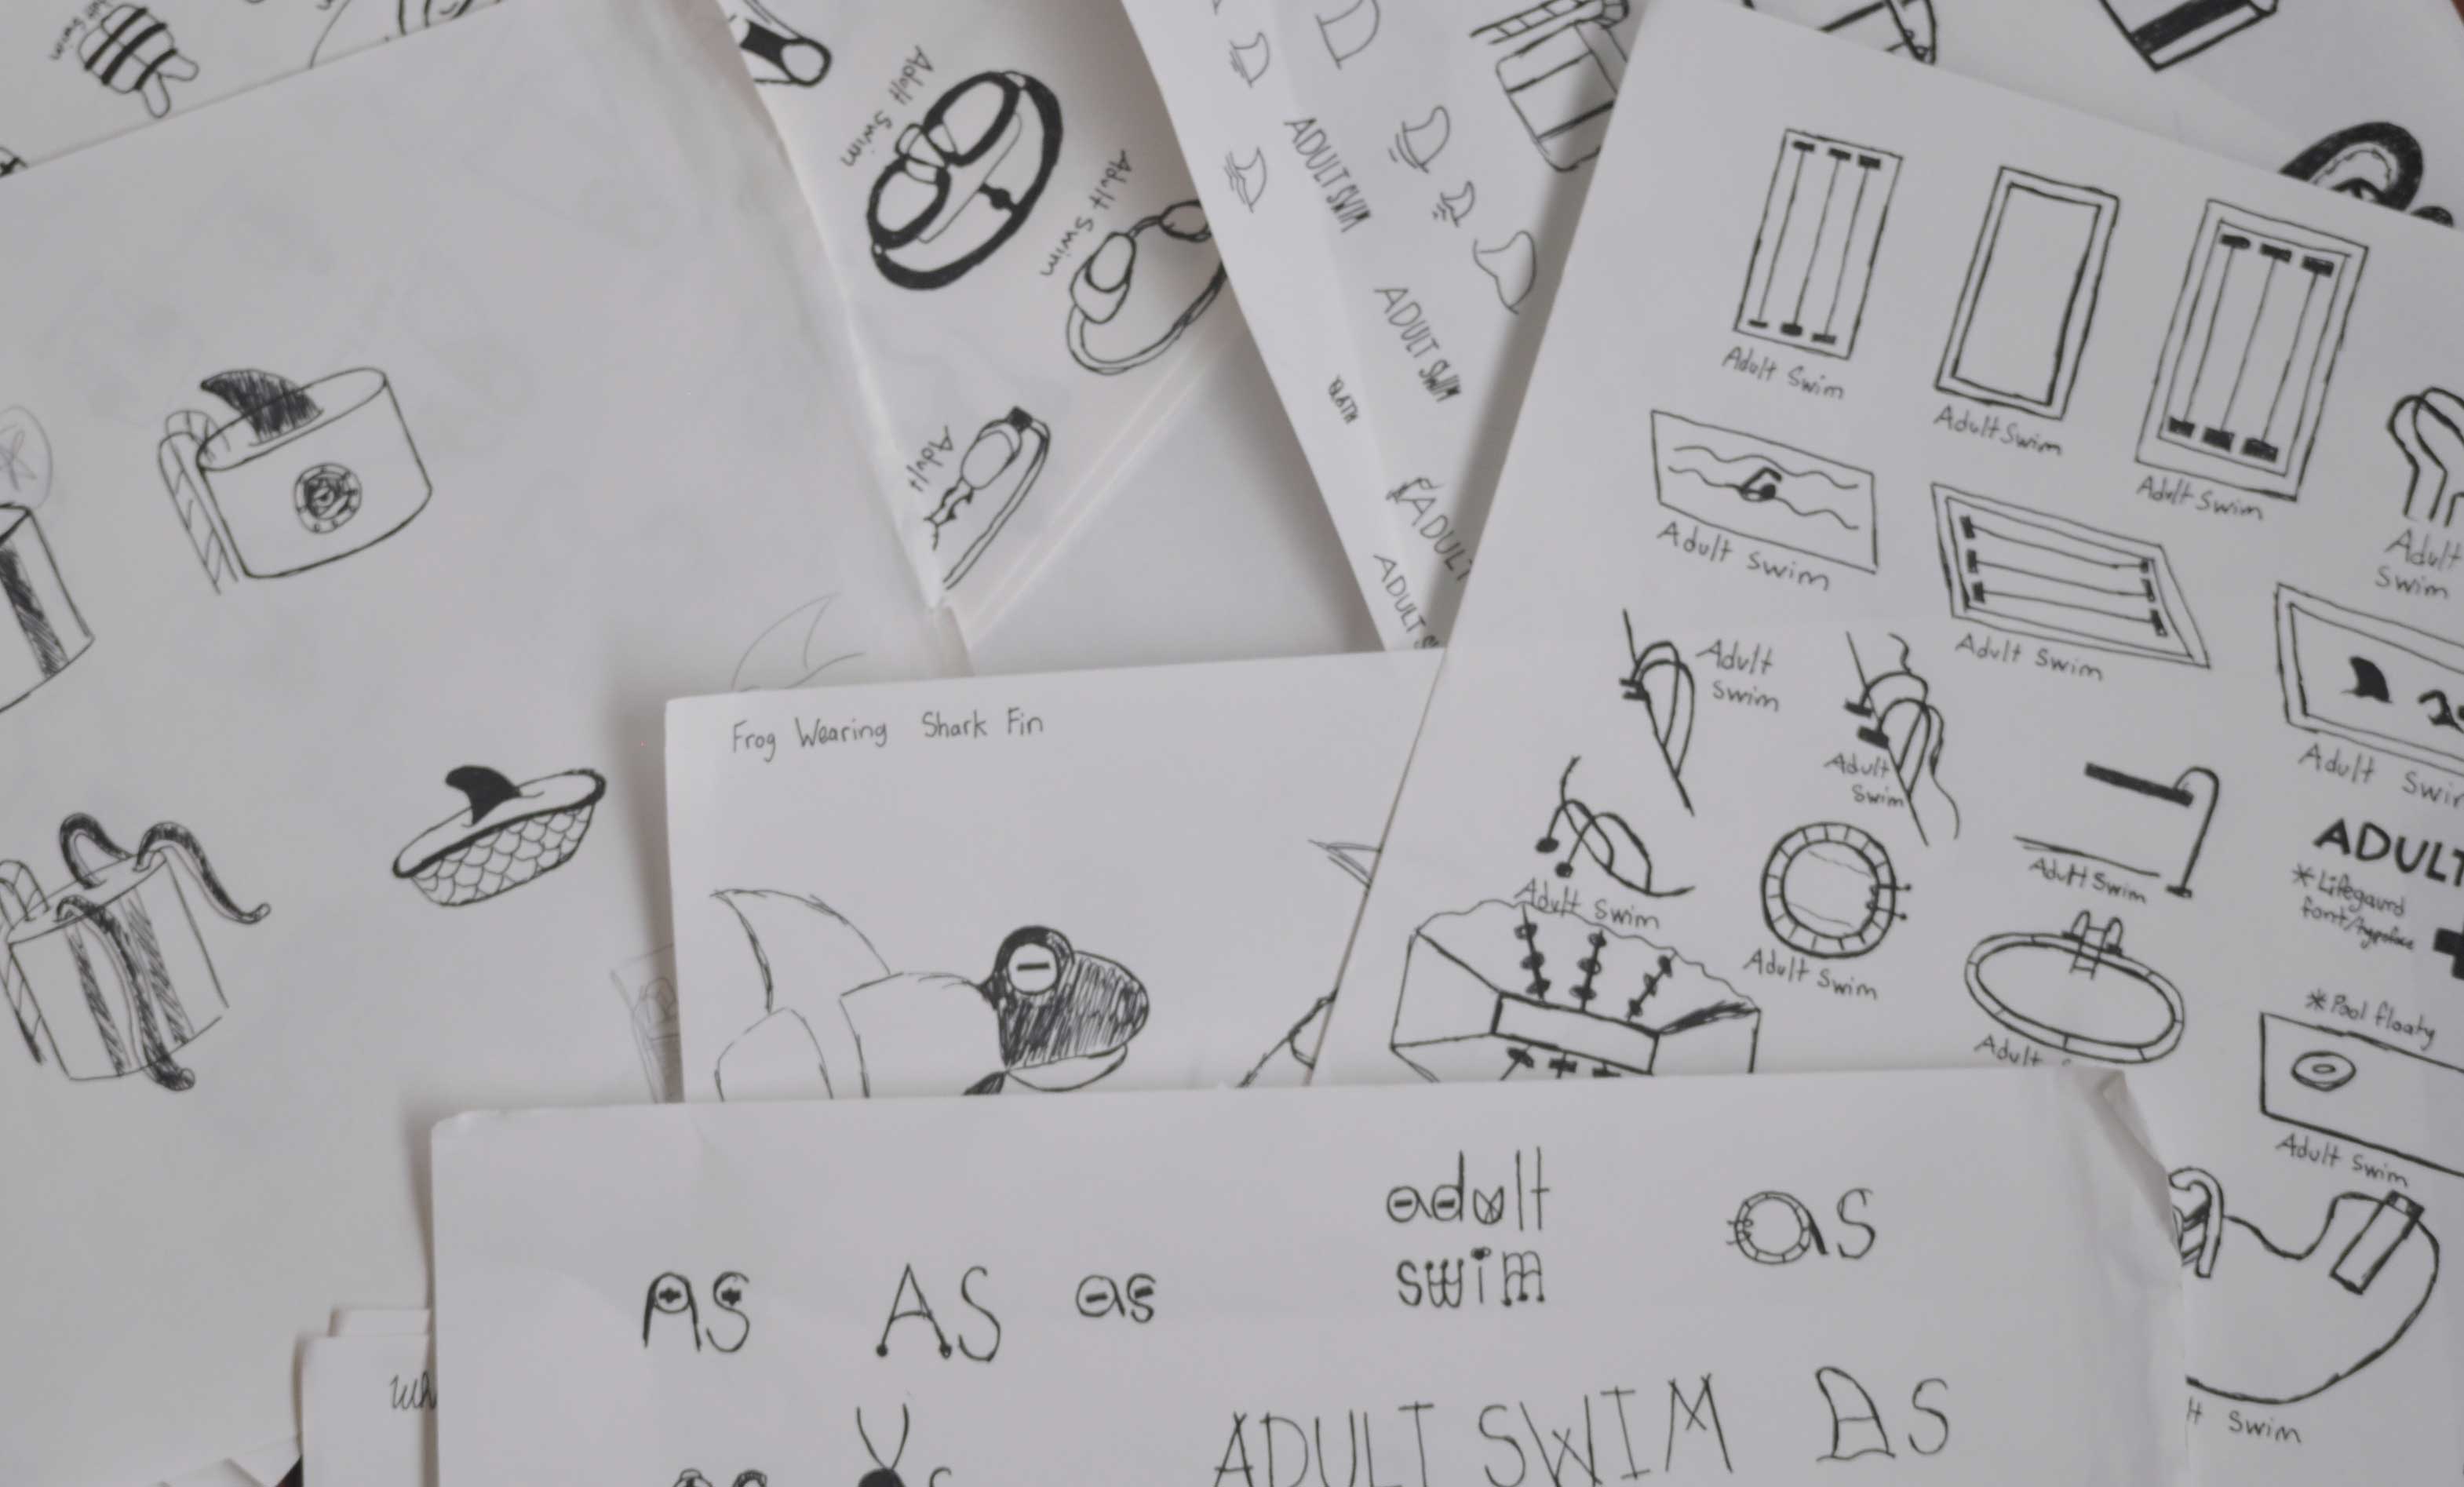 Adult Swim
Adult Swim
Adult
ADULT SWIM
ADULT SWIM
ADULT
ADULT
Adult Swim
Adult Swim
Adult Swim
Adult Swim
Adult Swim
Adult
Swim
Adult
Swim
Adult
Swim
Adult Swim
Adult Swim
Adult Swim
Adult Swim
Adult
ADULT
*Lifegaurd
font/typeface
*Pool floaty
Adult Swim
Swim
Frog Wearing Shark Fin
adult
swim
as
AS
AS
as
ADULT SWIM
AS